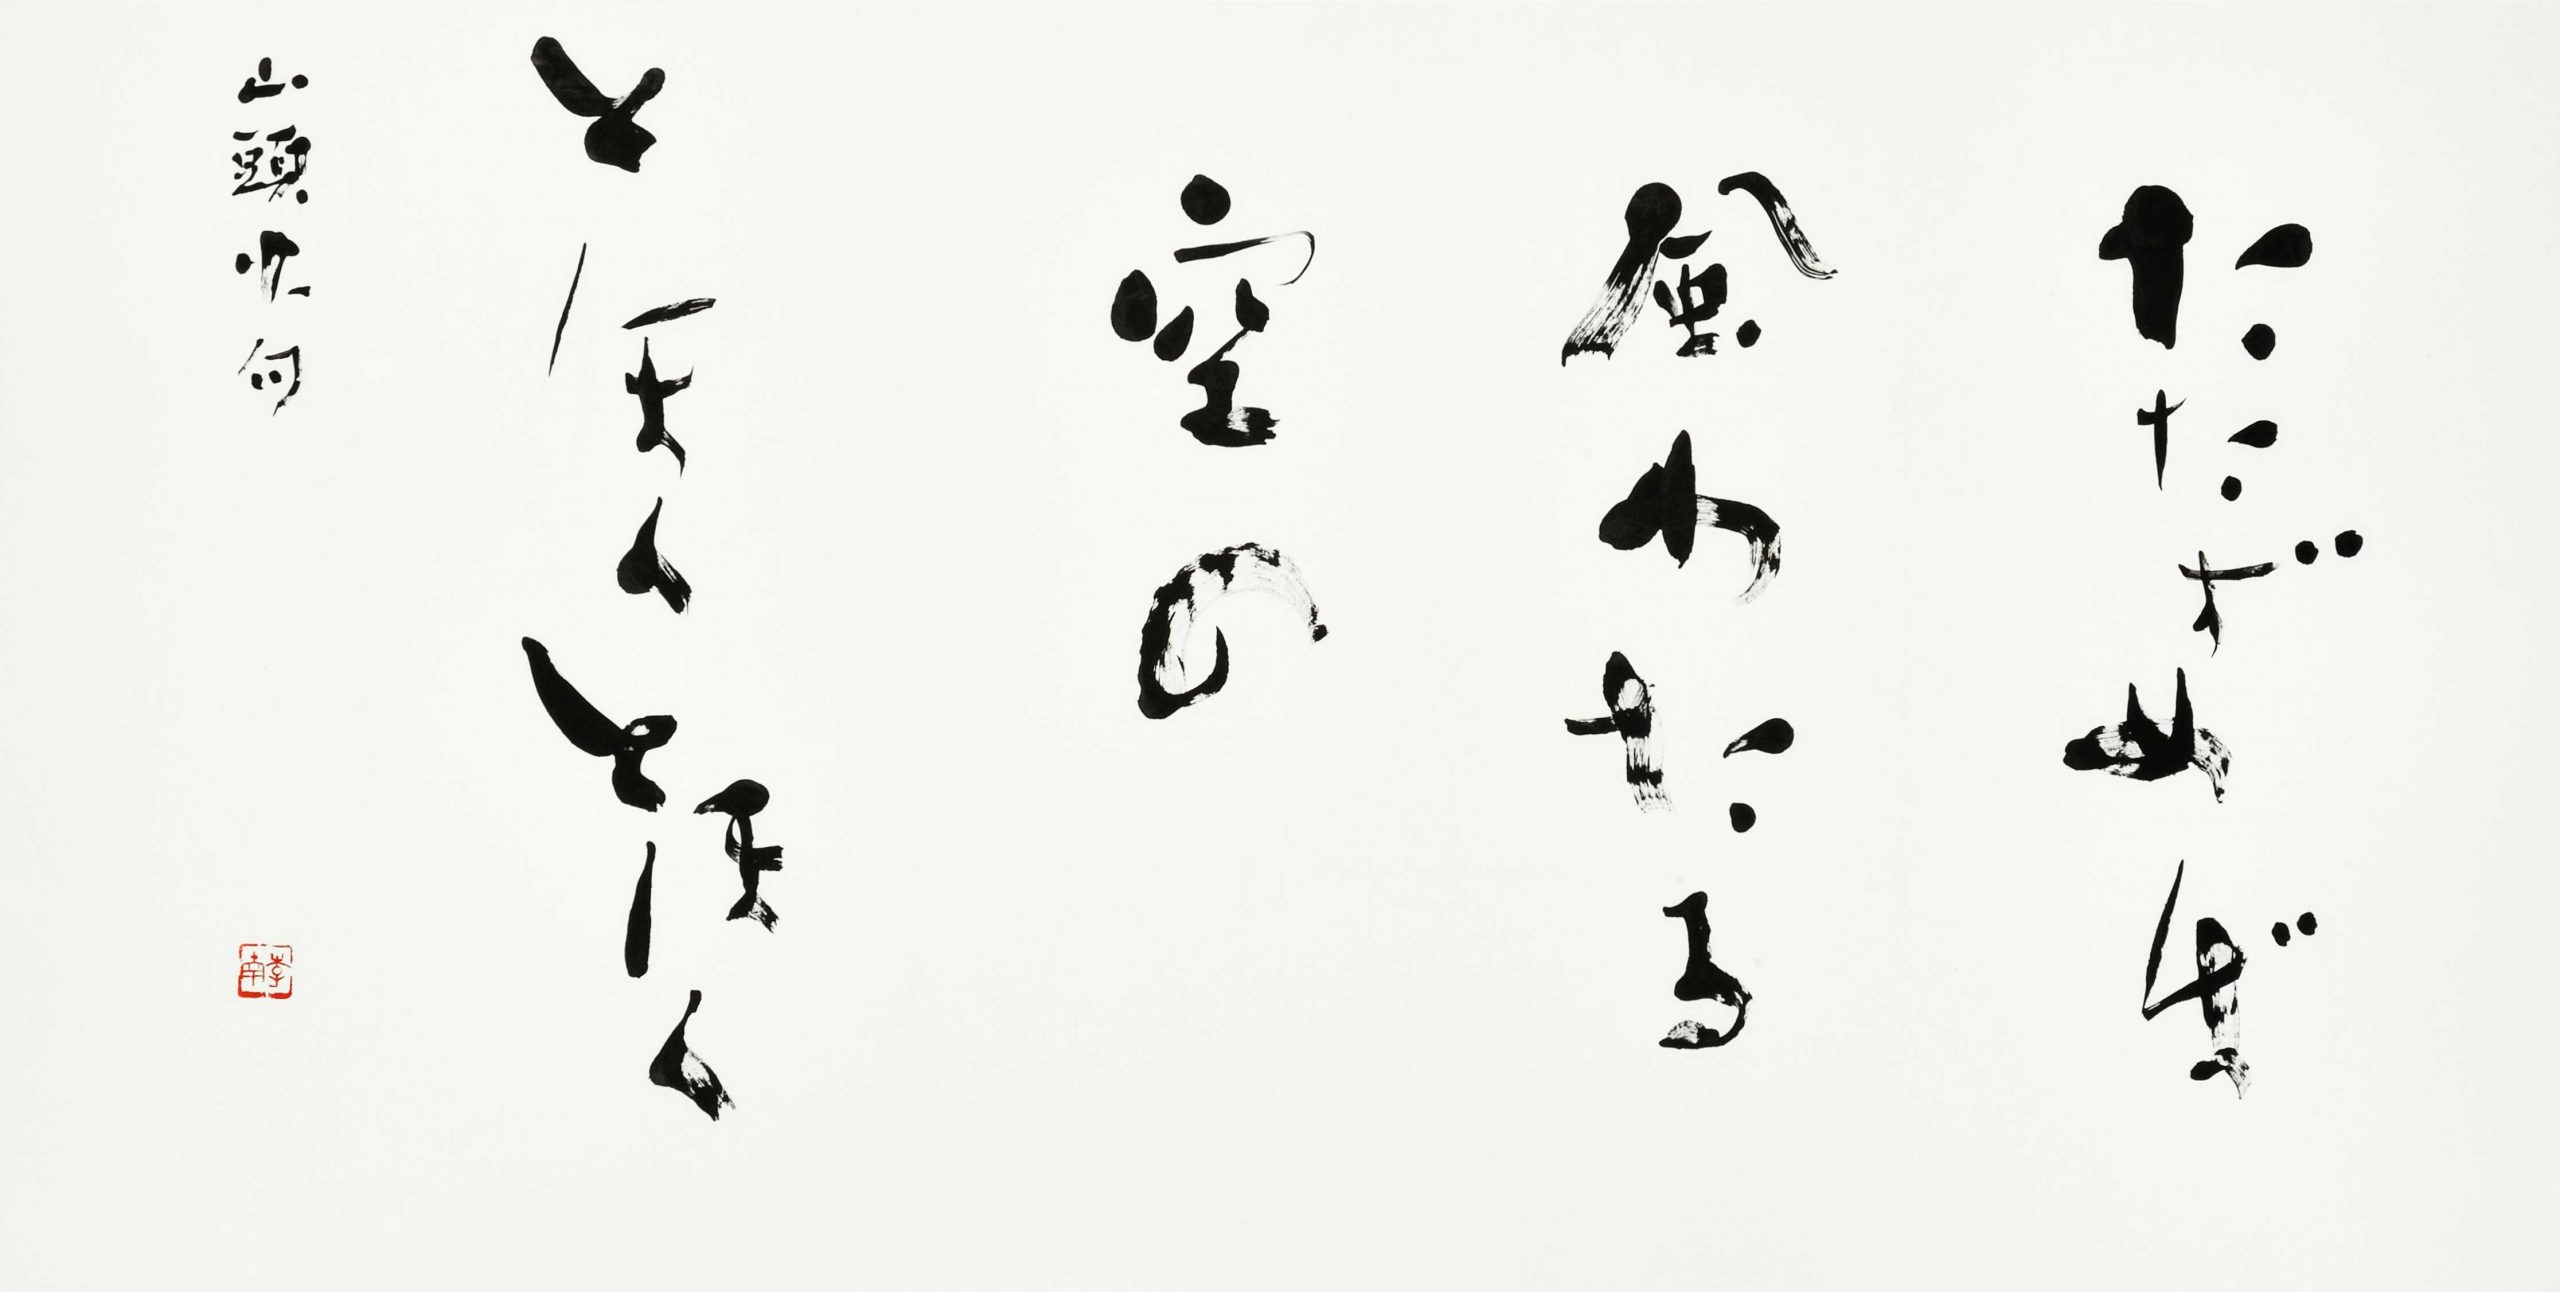 たたずめば
風わたる
空の
とほくとほく
山頭火句